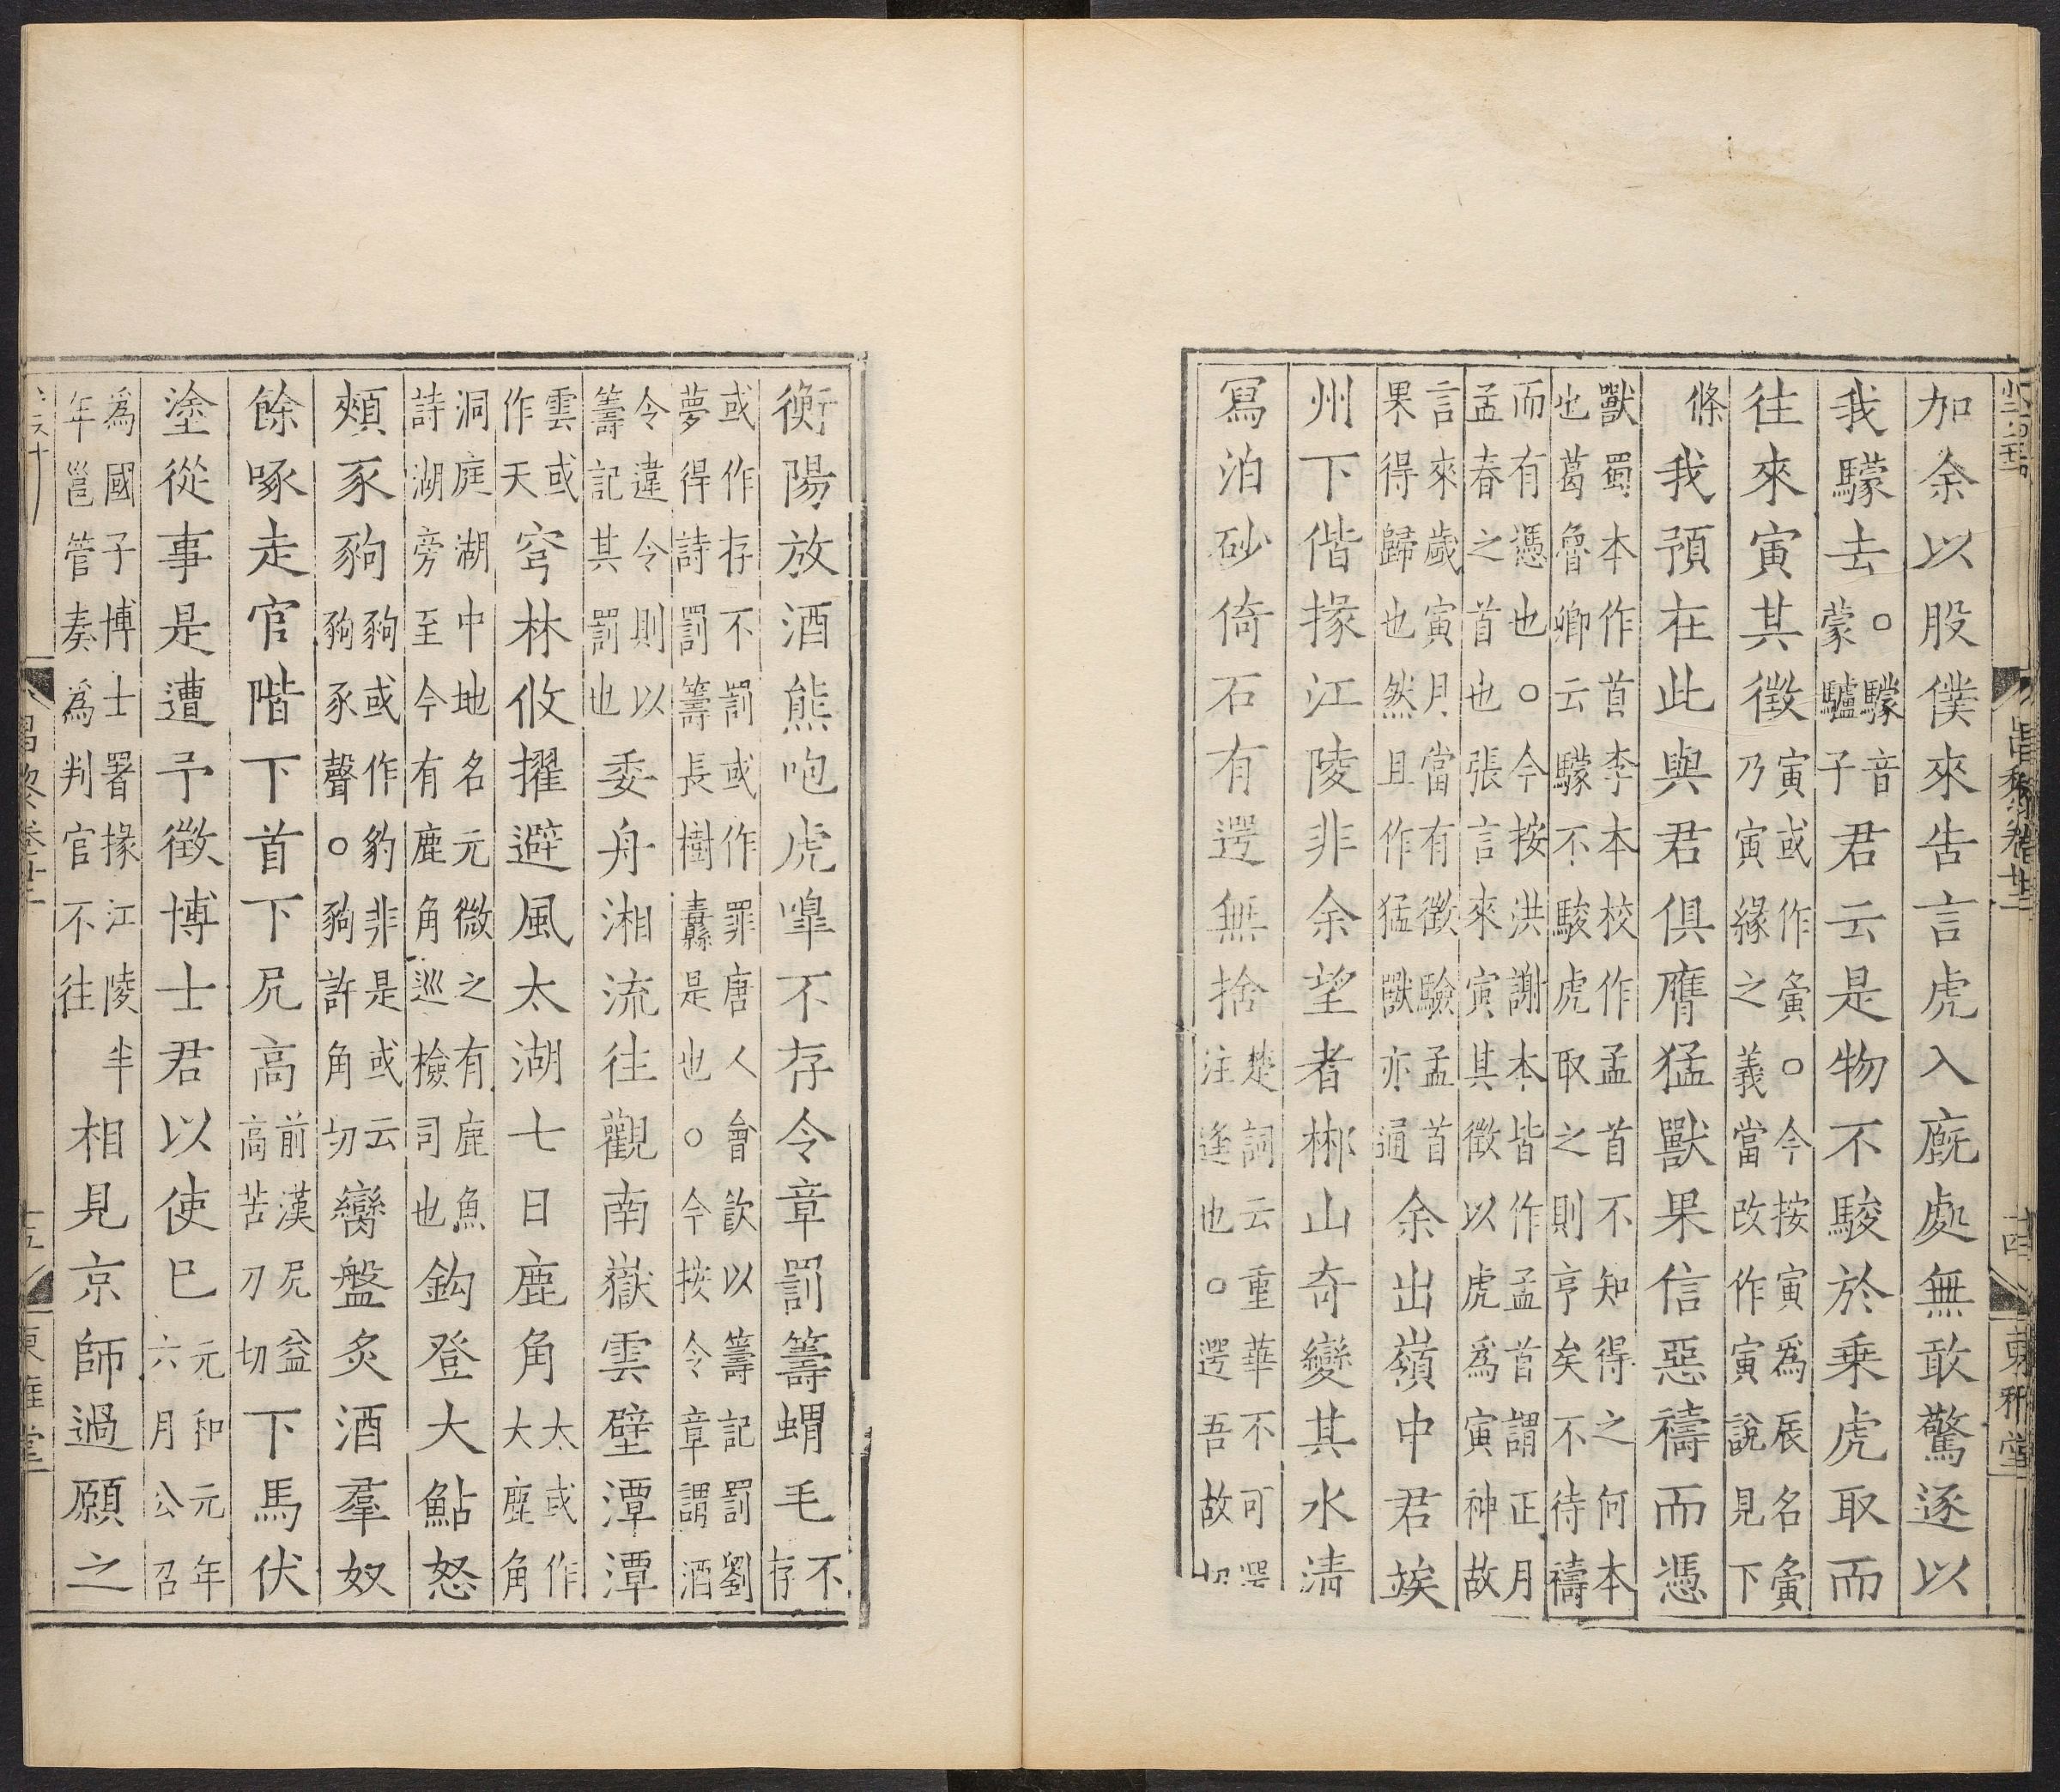 加余以股僕來告言虎入廐處無敢驚逐以
我䮵去○䮵音蒙驢子君云是物不駿於乗虎取而
往來寅其徵寅或作夤○今按寅爲辰名夤乃寅緣之義當改作寅說見下
條我預在此與君俱膺猛獸果信惡禱而憑
獸蜀本作首李本校作孟首不知得之何本
也葛魯卿云䮵不駿虎取之則亨矣不待禱
而有憑也○今按洪謝本皆作孟首謂正月
孟春之首也張言來寅其徵以虎爲寅神故
言來歲寅月當有徵驗孟首
果得歸也然且作猛獸亦通余出嶺中君竢
州下偕掾江陵非余望者郴山奇變其水清
寫泊砂倚石有遻無捨楚詞云重華不可遻注逢也○遻吾故切
東雅堂
衡陽放酒熊咆虎嘷不存令章罰籌蝟毛不存
或作存不罰或作罪唐人會飲以籌記罰劉
夢得詩罰籌長樹纛是也○今按令章謂酒
令違令則以
籌記其罰也委舟湘流往觀南嶽雲壁潭潭
雲或
作天穹林攸擢避風太湖七日鹿角太或作大鹿角
洞庭湖中地名元微之有鹿魚
詩湖旁至今有鹿角巡檢司也鈎登大鮎怒
頰豕豞豞或作豹非是或云豞豕聲○豞許角切臠盤炙酒羣奴
餘啄走官階下首下尻高前漢尻益高苦刀切下馬伏
塗從事是遭予徵博士君以使巳元和元年六月公召
爲國子博士署掾江陵半
年邕管奏爲判官不往相見京師過願之
東雅堂